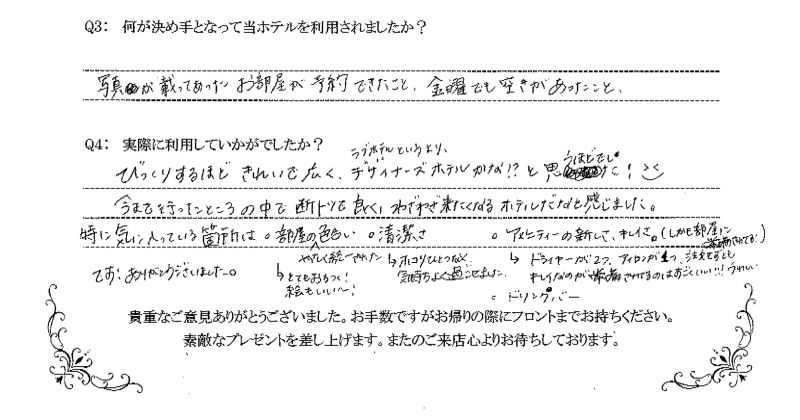 Q3： 何が決め手となって当ホテルを利用されましたか？
写真が載ってあったお部屋が予約できたこと、金曜でも空きがあったこと、
Q4： 実際に利用していかがでしたか？
ラブホテルというより、
びっくりするほど きれいで広く、デザイナーズホテルかな!?と思うほどでした！
今まで行ったところの中で断トツで良く、わざわざ来たくなるホテルだなと感じました。
特に気に入っている箇所は 。部屋の色合い 。清潔さ 。アメニティーの新しさ、キレイさ。(しかも部屋に
です！ありがとうございました。
↳とてもおちつく！
絵もいい～！
↳ホコリひとつなく、
気持ちよく過ごせました。
↳ドライヤーが2つ、アイロンが1つ、注文せずとも
。ドリンクバー
貴重なご意見ありがとうございました。お手数ですがお帰りの際にフロントまでお持ちください。
素敵なプレゼントを差し上げます。またのご来店心よりお待ちしております。